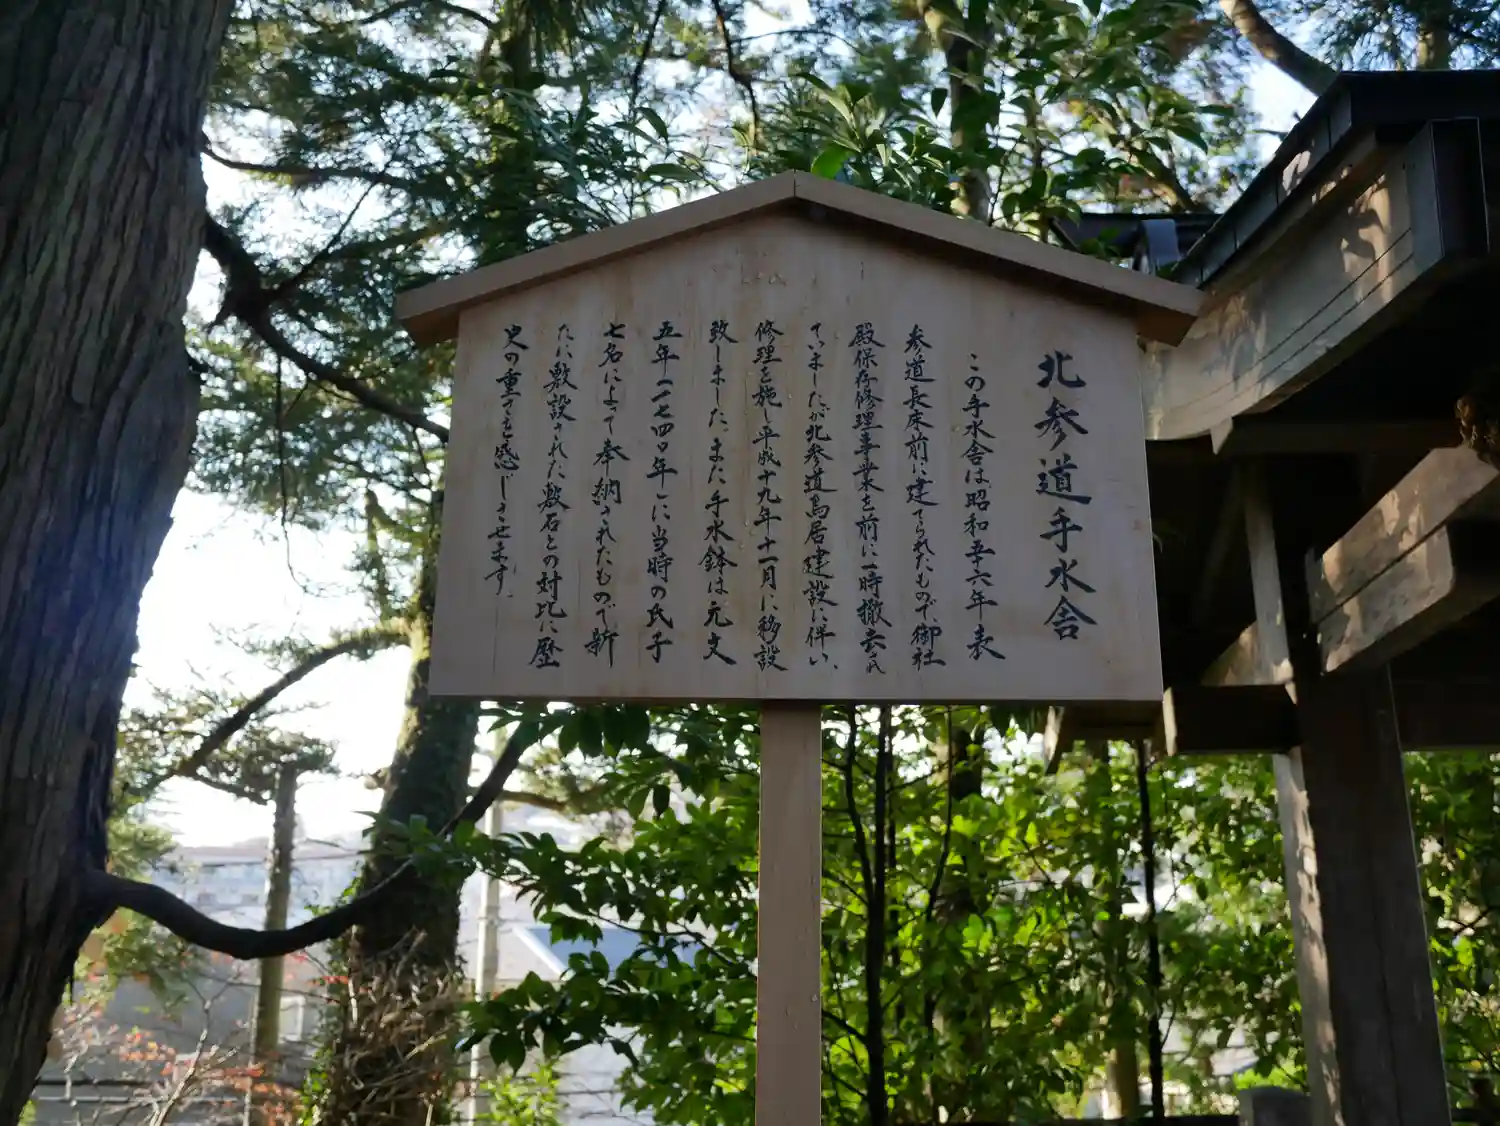 北参道手水舎
この手水舎は昭和五十六年表
参道長床前に建てられたもので、御社
殿保存修理事業を前に一時撤去され
ていましたが北参道鳥居建設に伴い、
修理を施し平成十九年十一月に移設
致しました。また手水鉢は元文
五年(一七四〇年)に当時の氏子
七名によって奉納されたもので新
たに敷設された敷石との対比に歴
史の重みを感じさせます。